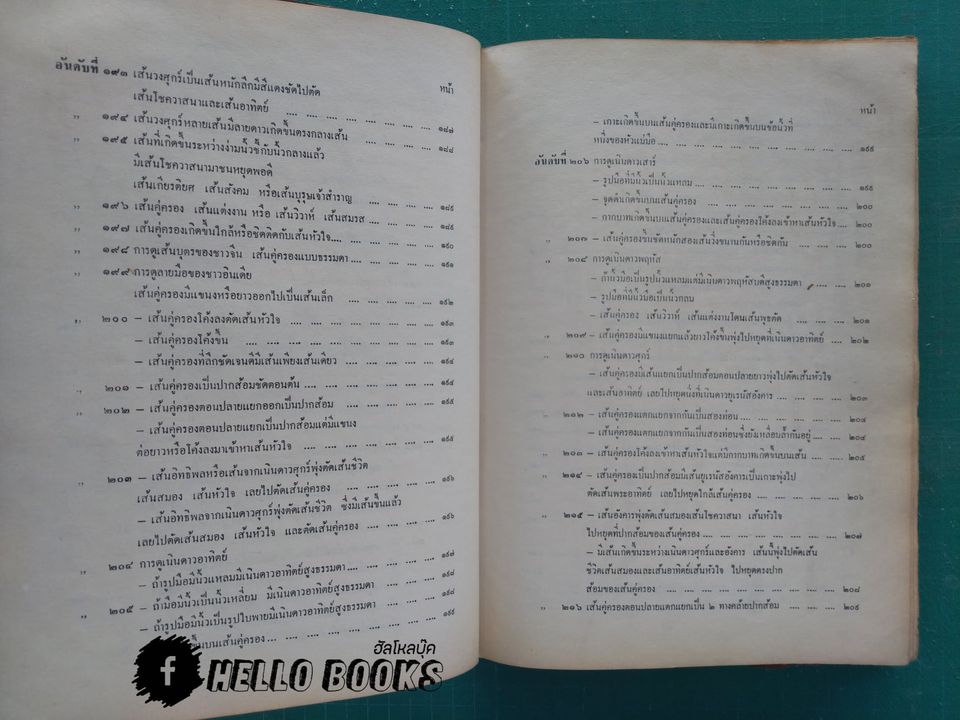 อันดับที่ ๑๙๓ เส้นวงศุกร์เป็นเส้นหนักลึกมีสีแดงชัดไปตัด หน้า
เส้นโชควาสนาและเส้นอาทิตย์ .... .... .... .... .... .... .... ๑๘๗
,, ๑๙๔ เส้นวงศุกร์หลายเส้นมีลายดาวเกิดขึ้นตรงกลางเส้น .... .... ๑๘๘
,, ๑๙๕ เส้นที่เกิดขึ้นระหว่างง่ามนิ้วชี้กับนิ้วกลางแล้ว
มีเส้นโชควาสนามาชนหยุดพอดี
เส้นเกียรติยศ เส้นสังคม หรือเส้นบุรุษเจ้าสำราญ .... .... .... ๑๘๙
,, ๑๙๖ เส้นคู่ครอง เส้นแต่งงาน หรือ เส้นวิวาห์ เส้นสมรส .... .... ๑๘๙
,, ๑๙๗ เส้นคู่ครองเกิดขึ้นใกล้หรือชิดติดกับเส้นหัวใจ.... .... .... .... ๑๙๐
,, ๑๙๘ การดูเส้นบุตรของชาวจีน เส้นคู่ครองแบบธรรมดา .... .... .... ๑๙๑
,, ๑๙๙ การดูลายมือของชาวอินเดีย
เส้นคู่ครองมีแขนงหรือยาวออกไปเป็นเส้นเล็ก .... .... .... .... ๑๙๒
,, ๒๐๐ – เส้นคู่ครองโค้งลงตัดเส้นหัวใจ .... .... .... .... .... .... ๑๙๓
– เส้นคู่ครองโค้งขึ้น .... .... .... .... .... .... .... .... ๑๙๓
– เส้นคู่ครองที่ลึกชัดเจนดีมีเส้นเพียงเส้นเดียว .... .... .... .... ๑๙๔
,, ๒๐๑ – เส้นคู่ครองเป็นปากส้อมชัดตอนต้น .... .... .... .... .... ๑๙๔
,, ๒๐๒ – เส้นคู่ครองตอนปลายแยกออกเป็นปากส้อม .... .... .... .... ๑๙๕
– เส้นคู่ครองตอนปลายแยกเป็นปากส้อมแต่มีแขนง
ต่อยาวหรือโค้งลงมาเข้าหาเส้นหัวใจ .... .... .... .... .... ๑๙๕
,, ๒๐๓ – เส้นอิทธิพลหรือเส้นจากเนินดาวศุกร์พุ่งตัดเส้นชีวิต
เส้นสมอง เส้นหัวใจ เลยไปตัดเส้นคู่ครอง .... .... .... .... ๑๙๖
– เส้นอิทธิพลจากเนินดาวศุกร์พุ่งตัดเส้นชีวิต ซึ่งมีเส้นขึ้นแล้ว
เลยไปตัดเส้นสมอง เส้นหัวใจ และตัดเส้นคู่ครอง .... .... .... ๑๙๖
,, ๒๐๔ การดูเนินดาวอาทิตย์
– ถ้ารูปมือมีนิ้วแหลมมีเนินดาวอาทิตย์สูงธรรมดา .... .... .... ๑๙๗
,, ๒๐๕ – ถ้ามือมีนิ้วเป็นนิ้วเหลี่ยม มีเนินดาวอาทิตย์สูงธรรมดา .... .... ๑๙๘
– ถ้ารูปมือมีนิ้วเป็นรูปใบพายมีเนินดาวอาทิตย์สูงธรรมดา .... .... ๑๙๘
ขึ้นบนเส้นคู่ครอง .... .... .... .... .... .... .... ๑๙๙
ฮัลโหลบุ๊ค
f HELLO BOOKS
หน้า
– เกาะเกิดขึ้นบนเส้นคู่ครองและมีเกาะเกิดขึ้นบนข้อนิ้วที่
หนึ่งของหัวแม่มือ .... .... .... .... .... .... .... .... ๑๙๙
อันดับที่ ๒๐๖ การดูเนินดาวเสาร์
– รูปมือที่มีนิ้วเป็นนิ้วแหลม .... .... .... .... .... .... .... ๑๙๙
– จุดดำเกิดขึ้นบนเส้นคู่ครอง .... .... .... .... .... .... ๒๐๐
– กากบาทเกิดขึ้นบนเส้นคู่ครองและเส้นคู่ครองโค้งลงเข้าหาเส้นหัวใจ .... ๒๐๐
,, ๒๐๗ – เส้นคู่ครองขึ้นชัดหนักสองเส้นวิ่งขนานกันหรือชิดกัน .... .... .... ๒๐๐
,, ๒๐๘ การดูเนินดาวพฤหัส
– ถ้านิ้วมือเป็นรูปนิ้วแหลมแต่มีเนินดาวพฤหัสบดีสูงธรรมดา .... .... ๒๐๑
– รูปมือที่มีนิ้วมือเป็นนิ้วกลม
– เส้นคู่ครอง เส้นวิวาห์ เส้นแต่งงานโดนเส้นพุธตัด .... .... .... ๒๐๑
,, ๒๐๙ – เส้นคู่ครองมีแขนงแยกแล้วยาวโค้งขึ้นพุ่งไปหยุดที่เนินดาวอาทิตย์ .... ๒๐๒
,, ๒๑๐ การดูเนินดาวศุกร์
– เส้นคู่ครองมีเส้นแยกเป็นปากส้อมตอนปลายยาวพุ่งไปตัดเส้นหัวใจ
และเส้นอาทิตย์ เลยไปหยุดนิ่งที่เนินดาวยูเรนัสอังคาร .... .... .... ๒๐๓
,, ๒๑๒ – เส้นคู่ครองแตกแยกจากกันเป็นสองท่อน .... .... .... .... .... ๒๐๔
– เส้นคู่ครองแตกแยกจากกันเป็นสองท่อนซึ่งยังเหลื่อมล้ำกันอยู่ .... .... ๒๐๔
,, ๒๑๓ – เส้นคู่ครองโค้งลงเข้าหาเส้นหัวใจแต่มีกากบาทเกิดขึ้นบนเส้น .... .... ๒๐๕
,, ๒๑๔ – เส้นคู่ครองเป็นปากส้อมมีเส้นยูเรนัสอังคารเป็นเกาะพุ่งไป
ตัดเส้นพระอาทิตย์ เลยไปหยุดใกล้เส้นคู่ครอง .... .... .... .... .... ๒๐๖
,, ๒๑๕ – เส้นอังคารพุ่งตัดเส้นสมองเส้นโชควาสนา เส้นหัวใจ
ไปหยุดที่ปากส้อมของเส้นคู่ครอง .... .... .... .... .... .... .... ๒๐๗
– มีเส้นเกิดขึ้นระหว่างเนินดาวศุกร์และอังคาร เส้นนี้พุ่งไปตัดเส้น
ชีวิตเส้นสมองและเส้นอาทิตย์เส้นหัวใจ ไปหยุดตรงปาก
ส้อมของเส้นคู่ครอง .... .... .... .... .... .... .... .... ๒๐๘
,, ๒๑๖ เส้นคู่ครองตอนปลายแตกแยกเป็น ๒ ทางคล้ายปากส้อม .... .... .... ๒๐๙